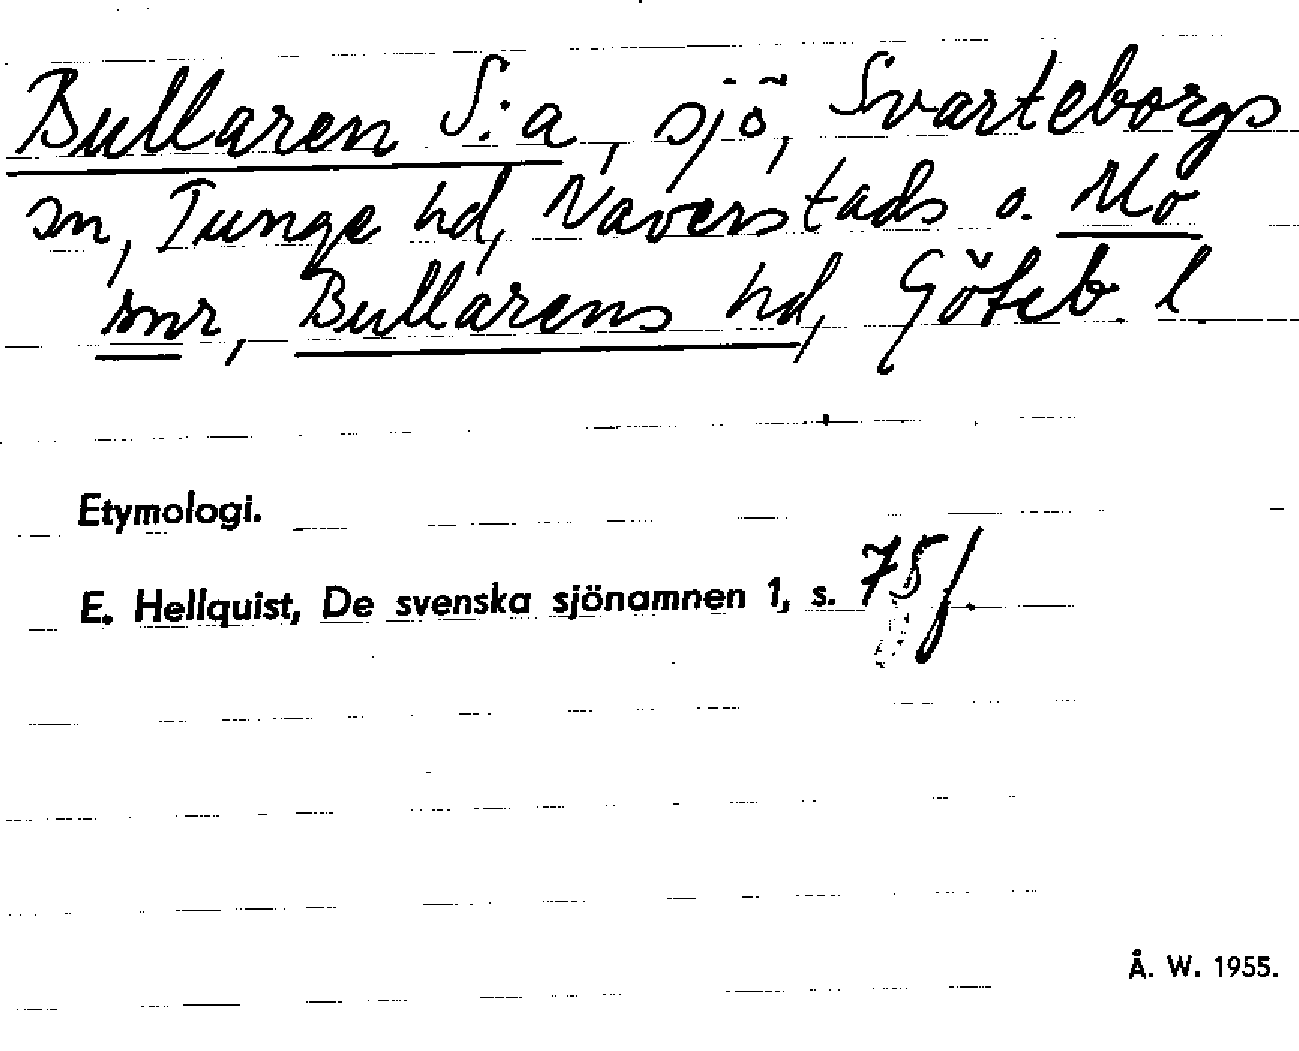 Bullaren S:a, sjö, Svarteborgs
sn, Tunge hd, Naverstads o. Mo
snr, Bullarens hd, Göteb l
Etymologi.
E. Hellquist, De svenska sjönamnen 1, s. 75f.
Å. W. 1955.